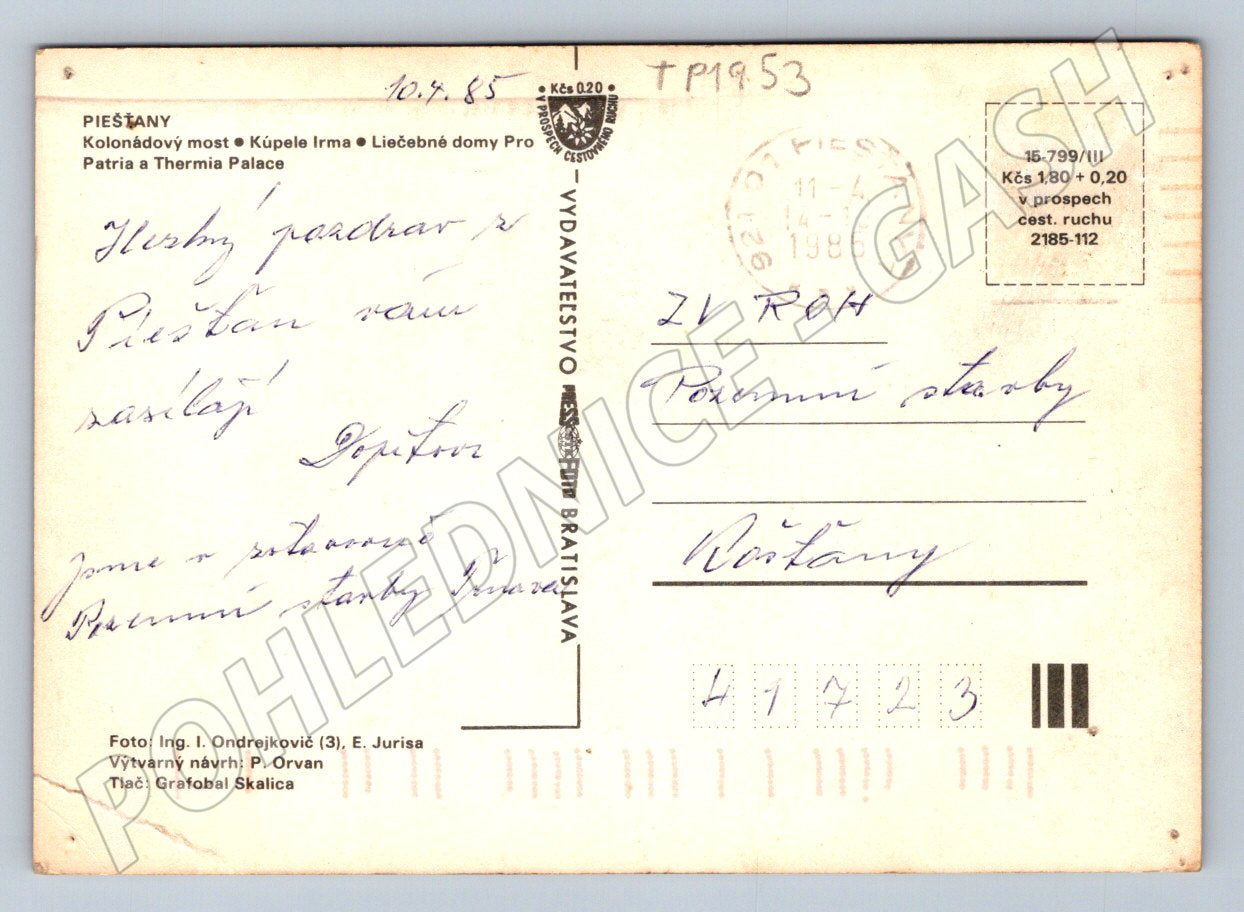 10.4.85
TP1953
• Kčs 0.20 •
V PROSPECH CESTOVNÉHO RUCHU
PIEŠŤANY
Kolonádový most ● Kúpele Irma ● Liečebné domy Pro
Patria a Thermia Palace
Hezký pozdrav z
Piešťan vám
zasílají
Dopitovi
Jsme v zotavovně
Pozemní stavby Trnava
Foto: Ing. I. Ondrejkovič (3), E. Jurisa
Výtvarný návrh: P. Orvan
Tlač: Grafobal Skalica
– VYDAVATEĽSTVO PRESSFOTO BRATISLAVA
921 01 PIEŠŤANY
11-4
1985
15-799/III
Kčs 1,80 + 0,20
v prospech
cest. ruchu
2185-112
ZV ROH
Pozemní stavby
Košťany
41723
POHLEDNICE - GASH